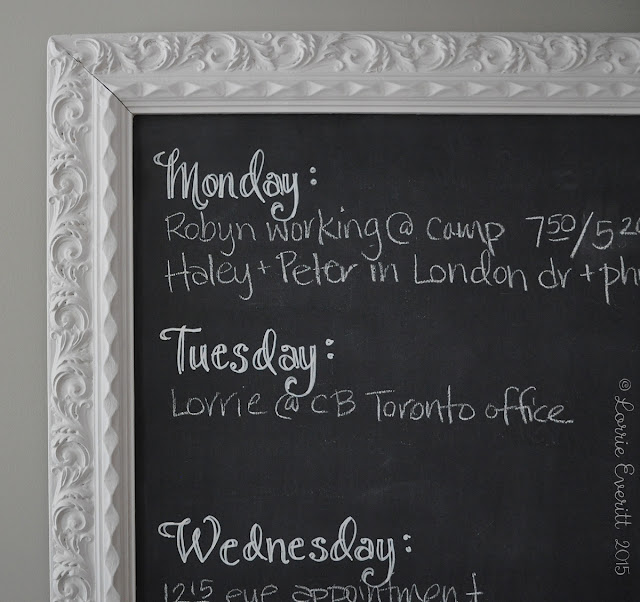 Monday:
Robyn working @ camp 7⁵⁰/5²⁰
Haley + Peter in London dr +
Tuesday:
Lorrie @ CB Toronto office
Wednesday:
12¹⁵ eye appointment
© Lorrie Everitt 2015